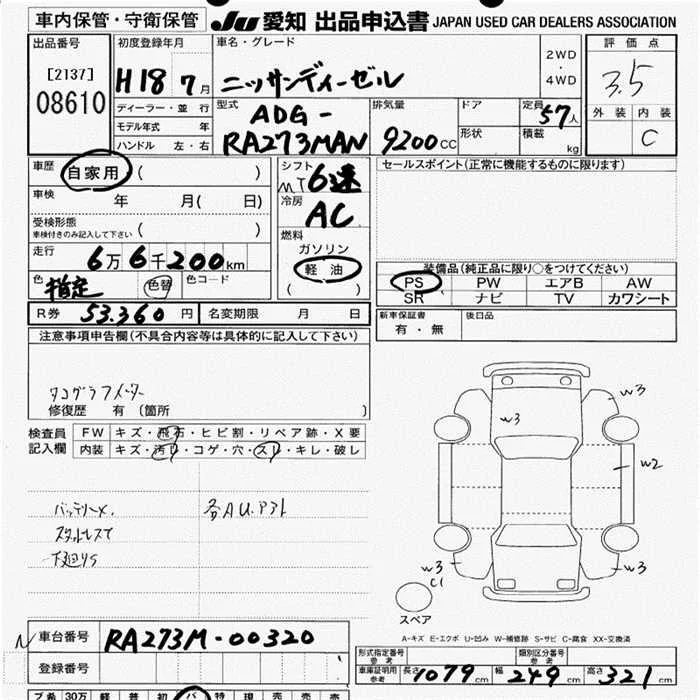 車内保管・守衛保管 JU 愛知 出品申込書 JAPAN USED CAR DEALERS ASSOCIATION
出品番号 初度登録年月 車名・グレード 2WD・4WD 評価点
[2137]
08610
H18 7月 ニッサンディーゼル 3.5
ディーラー・並行 型式 排気量 ドア 定員 57人 外装 内装
モデル年式 年 ADG- 形状 積載 kg C
ハンドル 左・右 RA273MAN 9200cc
車歴 自家用 ( ) シフト MT 6速 セールスポイント(正常に機能するものに限ります)
車検 年 月( 日) 冷房 AC
受検形態
車検付きのみ記入して下さい ( ) 燃料
走行 6万6千200km ガソリン
軽油
( )
装備品(純正品に限り○をつけてください)
色 指定 色替 色コード PS PW エアB AW
SR ナビ TV カワシート
R券 53.360円 名変期限 月 日 新車保証書 有・無 後日品
注意事項申告欄(不具合内容等は具体的に記入して下さい)
タコグラフメーター
修復歴 有 (箇所 )
検査員 FW キズ・飛石・ヒビ割・リペア跡・X要
記入欄 内装 キズ・汚レ・コゲ・穴・スレ・キレ・破レ
バッテリーメ. 各AU.アスト
スタットレスて
下廻りS
w3
w3
w2
w3
C1
w3
スペア
A-キズ E-エクボ U-凹み W-補修跡 S-サビ C-腐食 XX-交換済
N 車台番号 RA273M-00320
登録番号
形式指定番号 参考 類別区分番号 参考
車庫証明用 参考 長さ 1079cm 幅 249cm 高さ 321cm